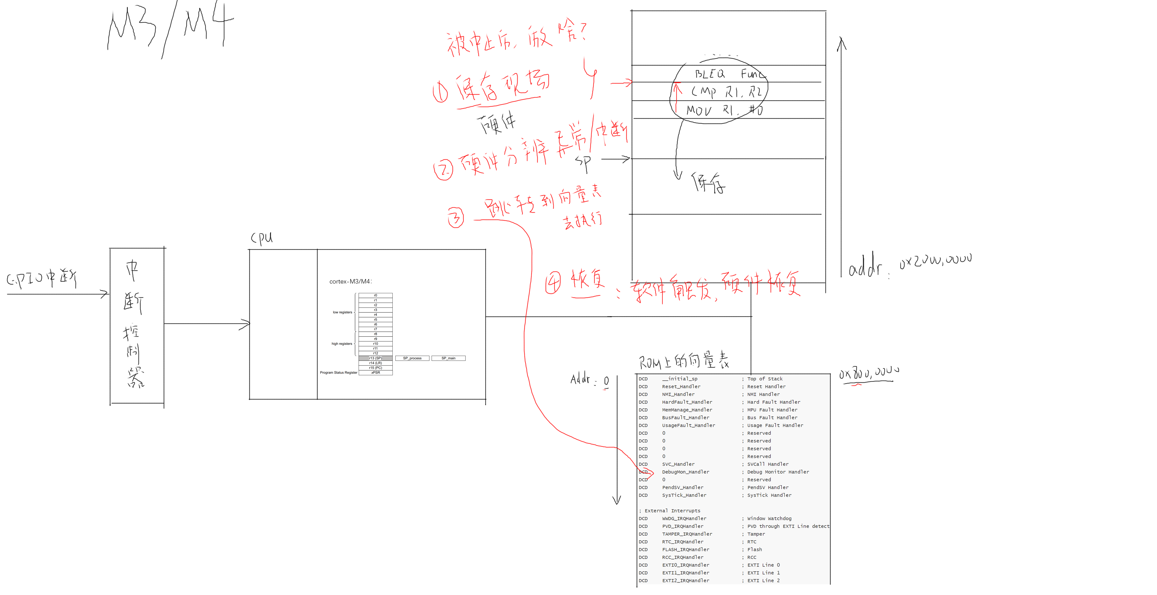 M3/M4
被中止后, 做啥?
① 保存现场
硬件
② 硬件分辨异常/中断
③ 跳转到向量表
去执行
④ 恢复: 软件触发, 硬件恢复
BLEQ Func
CMP R1, R2
MOV R1, #0
SP
保存
addr: 0x2000,0000
GPIO中断
中断控制器
CPU
cortex-M3/M4:
r0
r1
r2
r3
r4
r5
r6
r7
r8
r9
r10
r11
r12
low registers
high registers
r13 (SP) SP_process SP_main
r14 (LR)
r15 (PC)
Program Status Register xPSR
ROM上的向量表
Addr: 0
0x800,0000
DCD __initial_sp ; Top of Stack
DCD Reset_Handler ; Reset Handler
DCD NMI_Handler ; NMI Handler
DCD HardFault_Handler ; Hard Fault Handler
DCD MemManage_Handler ; MPU Fault Handler
DCD BusFault_Handler ; Bus Fault Handler
DCD UsageFault_Handler ; Usage Fault Handler
DCD 0 ; Reserved
DCD 0 ; Reserved
DCD 0 ; Reserved
DCD 0 ; Reserved
DCD SVC_Handler ; SVCall Handler
DCD DebugMon_Handler ; Debug Monitor Handler
DCD 0 ; Reserved
DCD PendSV_Handler ; PendSV Handler
DCD SysTick_Handler ; SysTick Handler
; External Interrupts
DCD WWDG_IRQHandler ; Window Watchdog
DCD PVD_IRQHandler ; PVD through EXTI Line detect
DCD TAMPER_IRQHandler ; Tamper
DCD RTC_IRQHandler ; RTC
DCD FLASH_IRQHandler ; Flash
DCD RCC_IRQHandler ; RCC
DCD EXTI0_IRQHandler ; EXTI Line 0
DCD EXTI1_IRQHandler ; EXTI Line 1
DCD EXTI2_IRQHandler ; EXTI Line 2